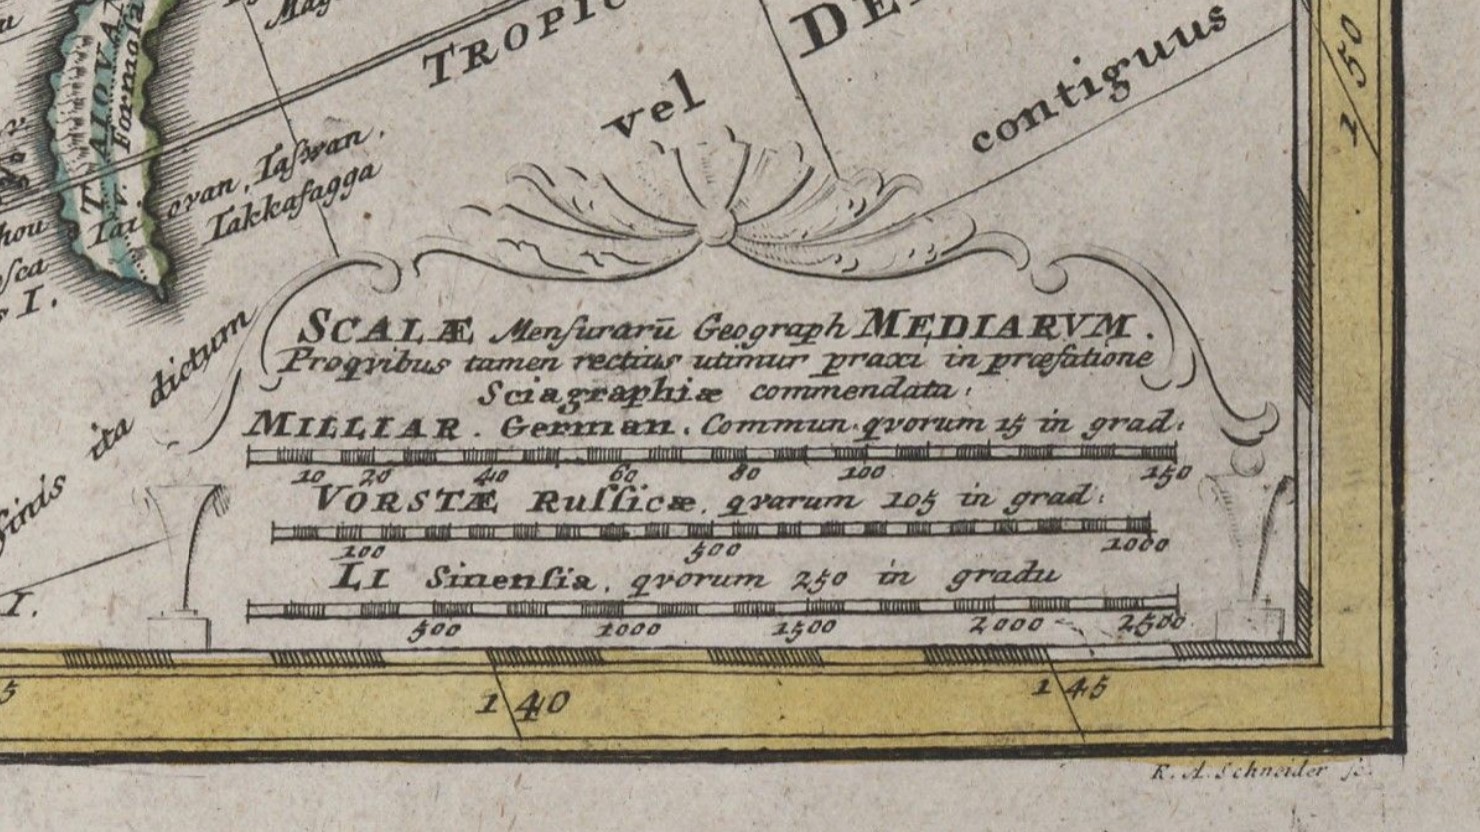 TROPIC
DE
vel
contiguus
TAIOVAN
v. Formosa
Tai ovan, Taſwan.
Takkaſagga
hou
eſca
s I.
ita dictum
Sinis
I.
SCALÆ Menſurarū Geograph MEDIARVM.
Proqvibus tamen rectius utimur praxi in præfatione
Sciagraphiæ commendata:
MILLIAR. German. Commun. qvorum 15 in grad:
10 20 40 60 80 100 150
VORSTÆ Ruſſicæ, qvarum 105 in grad:
100 500 1000
LI Sinenſia, qvorum 250 in gradu
500 1000 1500 2000 2500
5 140 145
150
R. A. Schneider ſc.